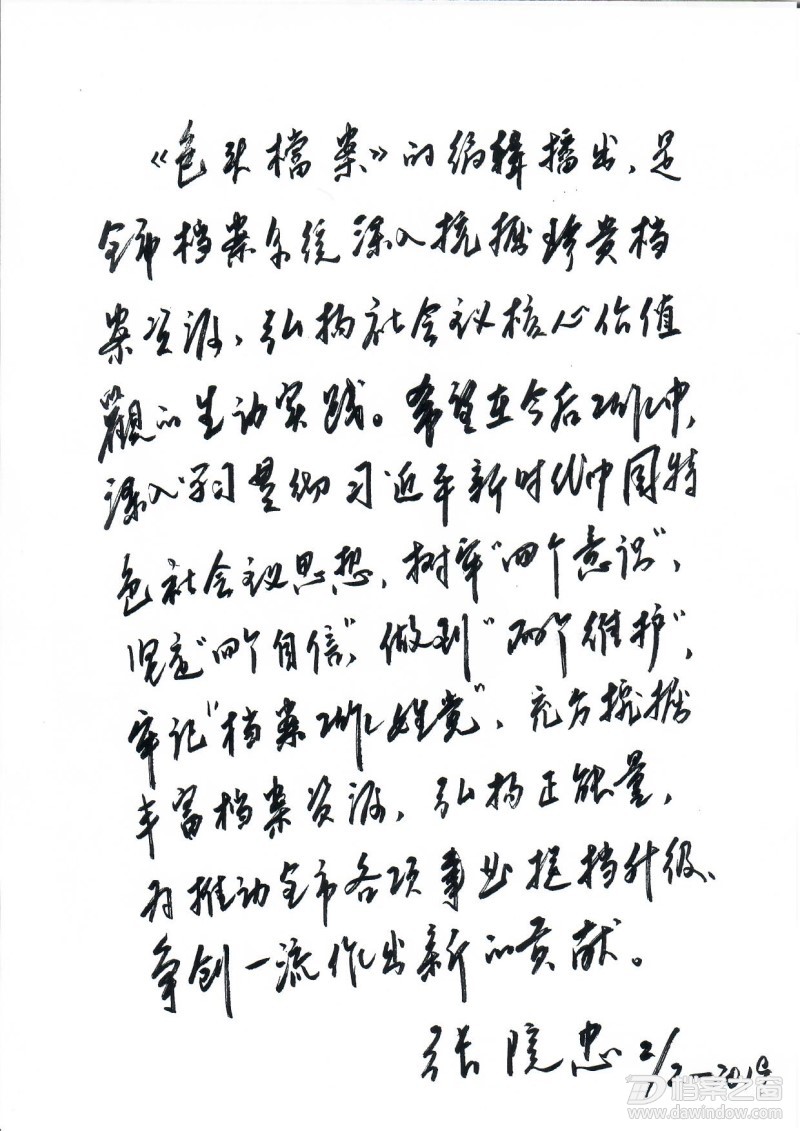 《包头檔案》的编辑播出,是
全市档案系统深入挖掘珍贵档
案资源、弘扬社会主义核心价值
觀的生动实践。希望在今后工作中,
深入学习贯彻习近平新时代中国特
色社会主义思想,树牢“四个意识”,
坚定“四个自信”,做到“两个维护”,
牢记“档案工作姓党”,充分挖掘
丰富档案资源,弘扬正能量,
为推动全市各项事业提档升级、
争创一流作出新的贡献。
张院忠 2/2-2019
档案之窗
www.dawindow.com